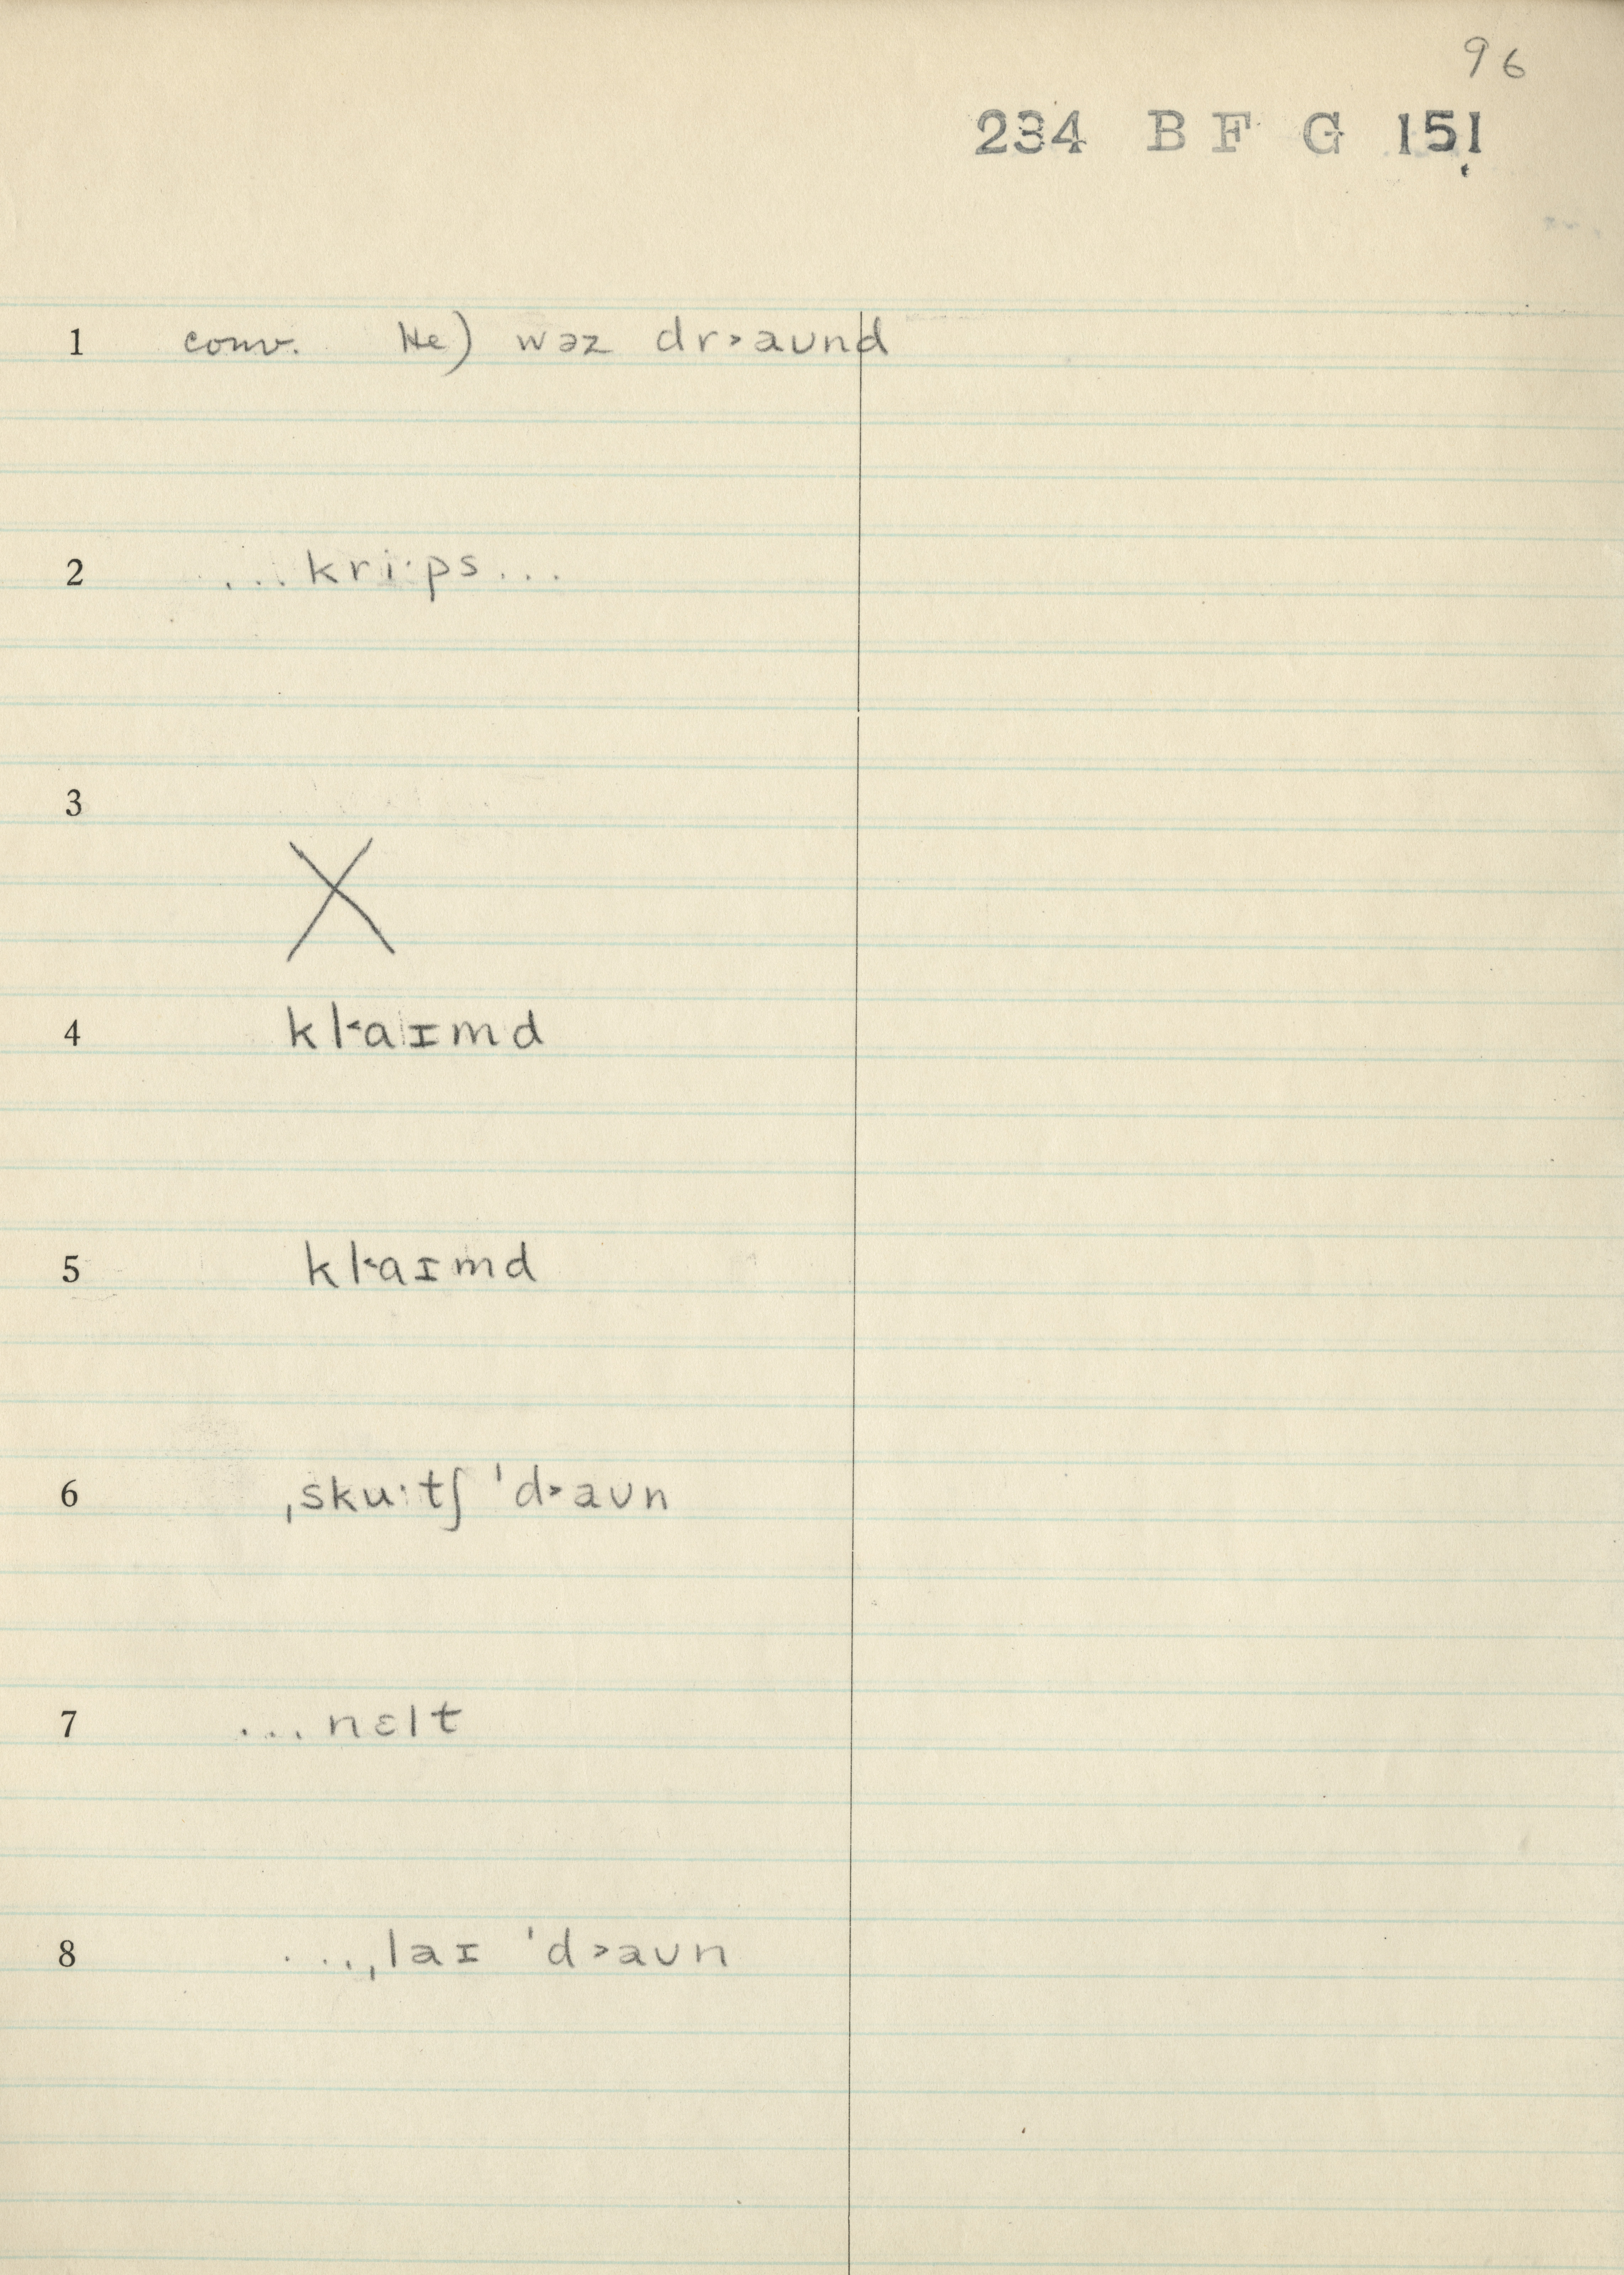 96
234 B F G 151
1 conv. He) wəz dr˃aʊnd
2 ...kri·ps...
3
X
4 kl˂aɪmd
5 kl˂aɪmd
6 ˌsku·tʃ ˈd˃aʊn
7 ...nɛlt
8 ...ˌlaɪ ˈd˃aʊn